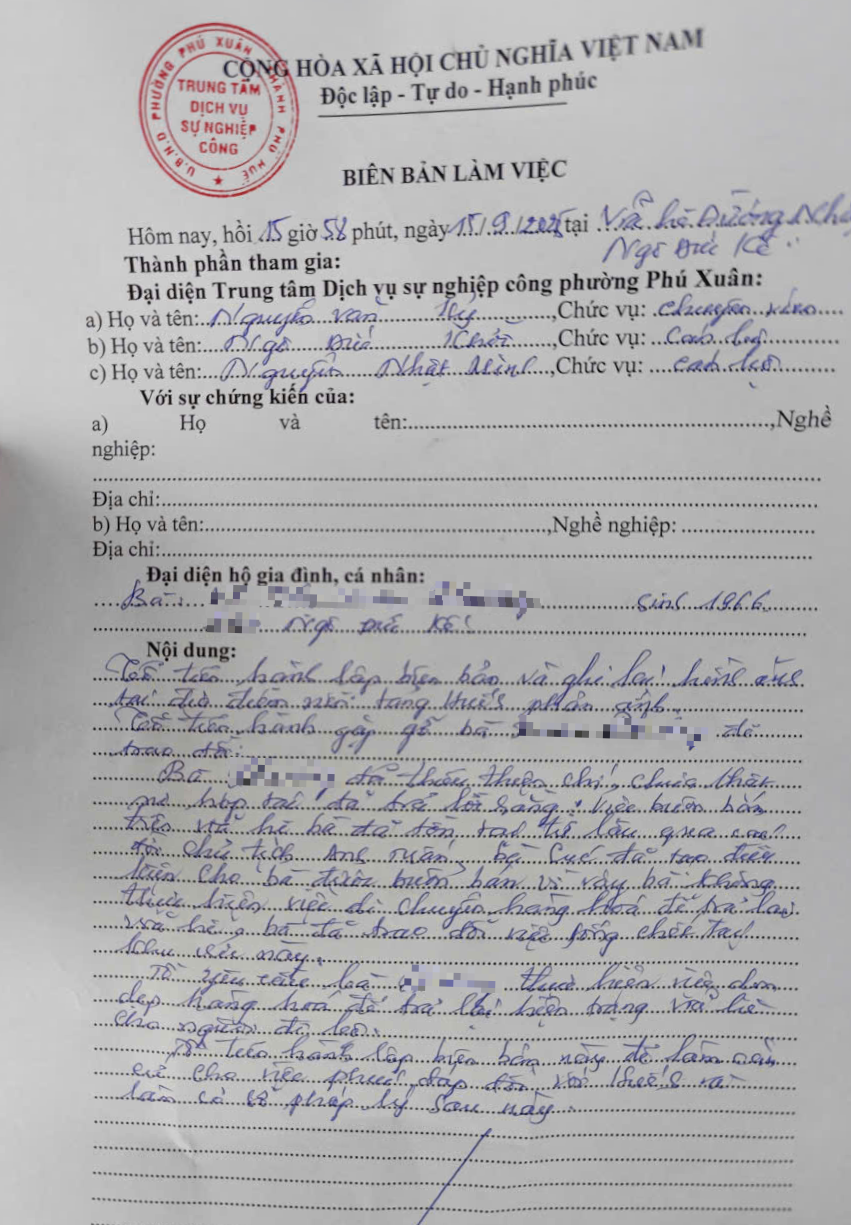 CỘNG HÒA XÃ HỘI CHỦ NGHĨA VIỆT NAM
Độc lập - Tự do - Hạnh phúc
U.B.N.D PHƯỜNG PHÚ XUÂN THÀNH PHỐ HUẾ
TRUNG TÂM
DỊCH VỤ
SỰ NGHIỆP
CÔNG
BIÊN BẢN LÀM VIỆC
Hôm nay, hồi 15 giờ 58 phút, ngày 15/9/2025 tại Vỉa hè Đường
Ngô Đức Kế
Thành phần tham gia:
Đại diện Trung tâm Dịch vụ sự nghiệp công phường Phú Xuân:
a) Họ và tên: Nguyễn Văn, Chức vụ: Chuyên viên
b) Họ và tên: Ngô Đức, Chức vụ: Cán bộ
c) Họ và tên: Nguyễn Nhật Minh, Chức vụ: Cán bộ
Với sự chứng kiến của:
a) Họ và tên:, Nghề
nghiệp:
Địa chỉ:
b) Họ và tên:, Nghề nghiệp:
Địa chỉ:
Đại diện hộ gia đình, cá nhân:
Bà: sinh 1966
Ngô Đức Kế
Nội dung:
Tổ tiến hành lập biên bản và ghi lại hiện
tại địa điểm mà trang HueS phản ánh.
Tổ tiến hành gặp gỡ bà để
trao đổi:
Bà đã thiếu thiện chí, chưa thật
sự hợp tác, đã trả lời rằng: Việc buôn bán
trên vỉa hè bà đã tồn tại từ lâu qua các
đời chủ tịch Anh Tuấn, bà Cúc đã tạo điều
kiện cho bà được buôn bán vì vậy bà không
thực hiện việc di chuyển hàng hoá để trả lại
vỉa hè, bà đã trao đổi việc sống chết tại
khu vực này.
Tổ yêu cầu bà thực hiện việc dọn
dẹp hàng hoá để trả lại hiện trạng vỉa hè
cho người đi bộ.
Tổ tiến hành lập biên bản này để làm căn
cứ cho việc phúc đáp đối với HueS và
làm cơ sở pháp lý sau này.